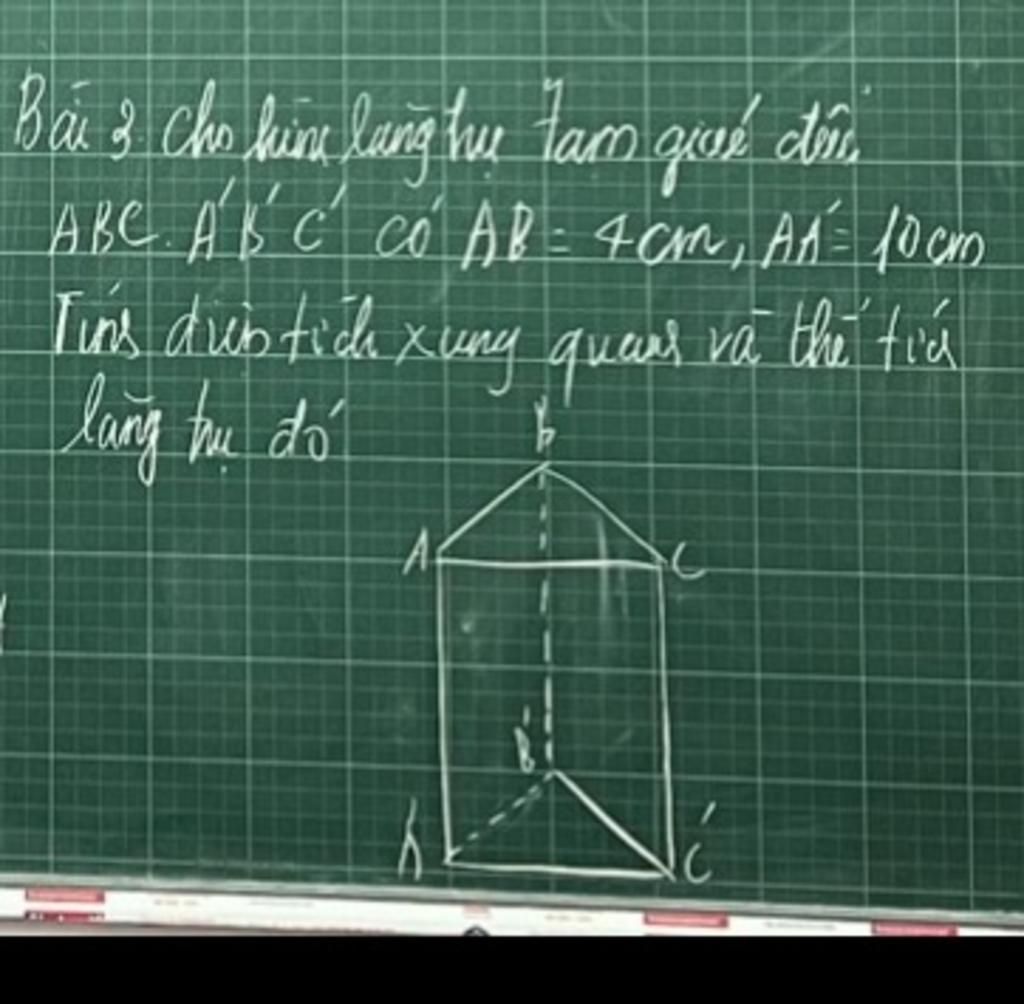 Bài 3. Cho hình lăng trụ Tam giác đều
ABC. A'B'C' có AB = 4cm, AA' = 10cm
Tính diện tích xung quanh và thể tích
lăng trụ đó
B
A
C
B'
A'
C'